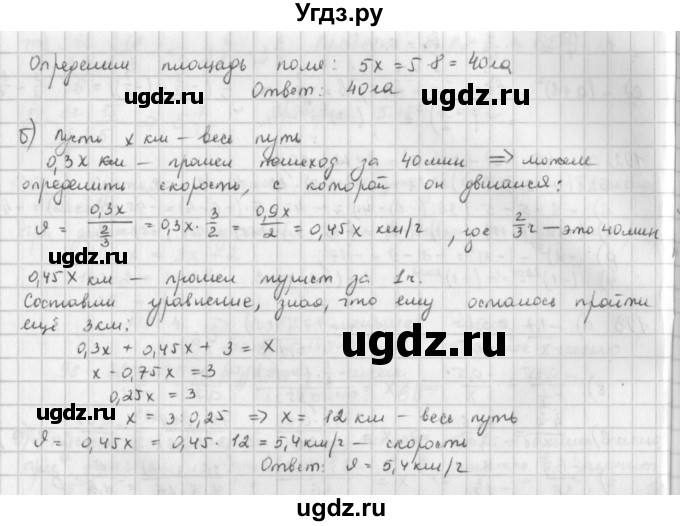 Угдз.ру
Определим площадь поля: 5x = 5·8 = 40га
Ответ: 40га
ugdz.ru ugdz.ru
б) Пусть x км – весь путь
0,3x км – прошел пешеход за 40мин ⟹ можем
определить скорость, с которой он двигался:
ϑ = 0,3x / (2/3) = 0,3x · 3/2 = 0,9x/2 = 0,45x км/г, где 2/3 г – это 40мин
ugdz.ru
0,45x км – прошел турист за 1г.
Составим уравнение, зная, что ему осталось пройти
ещё 3км:
0,3x + 0,45x + 3 = x
ugdz.ru
x - 0,75x = 3
0,25x = 3
ugdz.ru
x = 3:0,25 ⟹ x = 12 км – весь путь
ϑ = 0,45x = 0,45·12 = 5,4км/г – скорость
Ответ: ϑ = 5,4км/г
ugdz.ru ugdz.ru
ugdz.ru